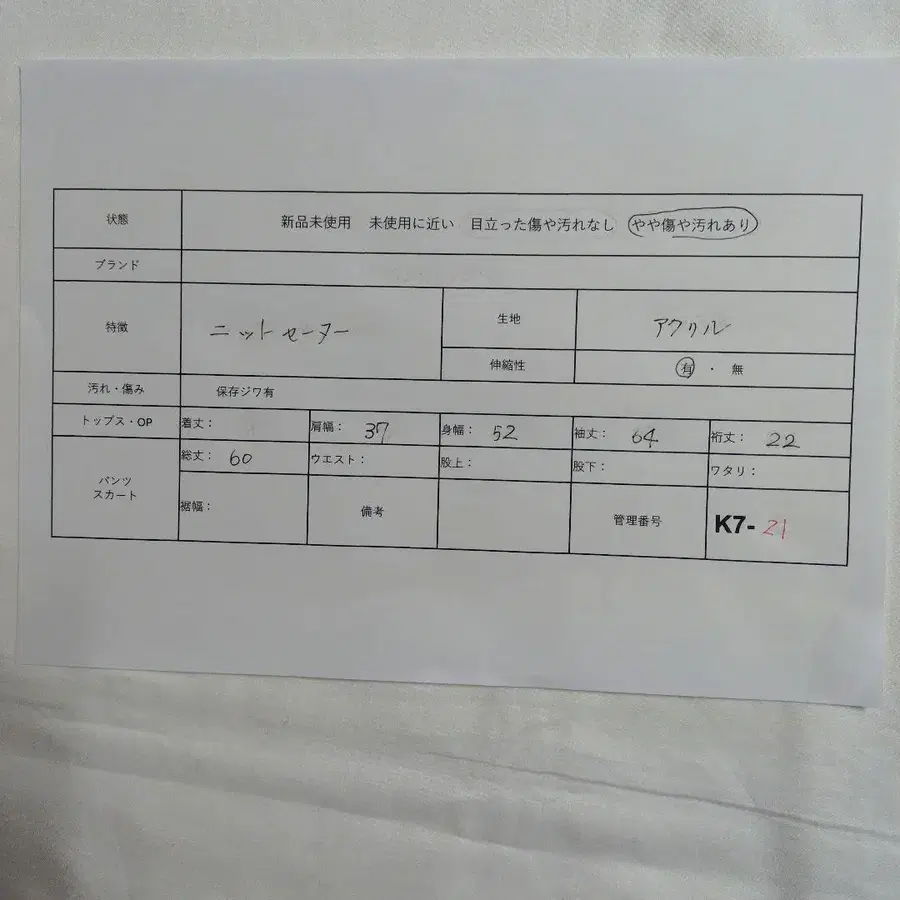 状態 新品未使用 未使用に近い 目立った傷や汚れなし やや傷や汚れあり
ブランド
特徴 ニットセーター 生地 アクリル
伸縮性 有 ・ 無
汚れ・傷み 保存ジワ有
トップス・OP 着丈： 肩幅： 37 身幅： 52 袖丈： 64 裄丈： 22
パンツ スカート 総丈： 60 ウエスト： 股上： 股下： ワタリ：
裾幅： 備考 管理番号 K7- 21